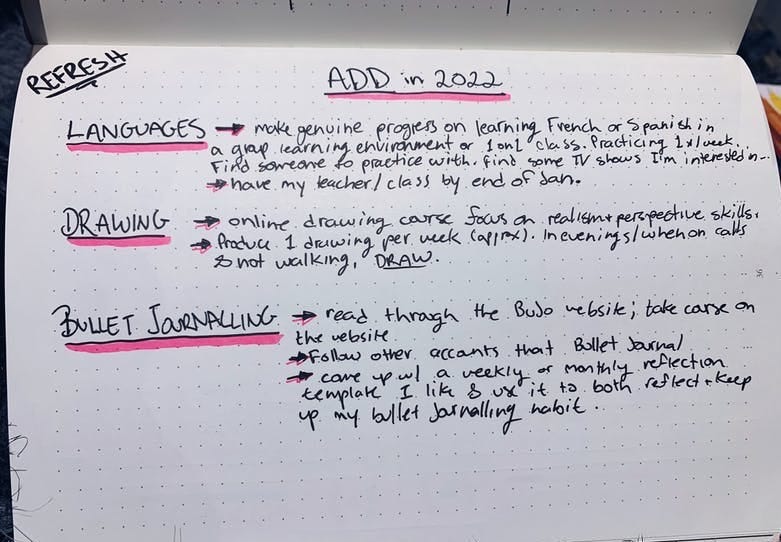 REFRESH
ADD in 2022
LANGUAGES → make genuine progress on learning French or Spanish in
a group learning environment or 1 on 1 class. Practicing 1x/week.
Find someone to practice with. Find some TV shows I'm interested in...
→ have my teacher/class by end of Jan.
DRAWING → online drawing course focus on realism + perspective skills.
→ Produce 1 drawing per week (apprx). In evenings/when on calls
& not walking, DRAW.
BULLET JOURNALLING → read through the BuJo website; take course on
the website
→ Follow other accounts that Bullet Journal
→ come up w/ a weekly or monthly reflection
template I like & use it to both reflect + keep
up my bullet journalling habit.